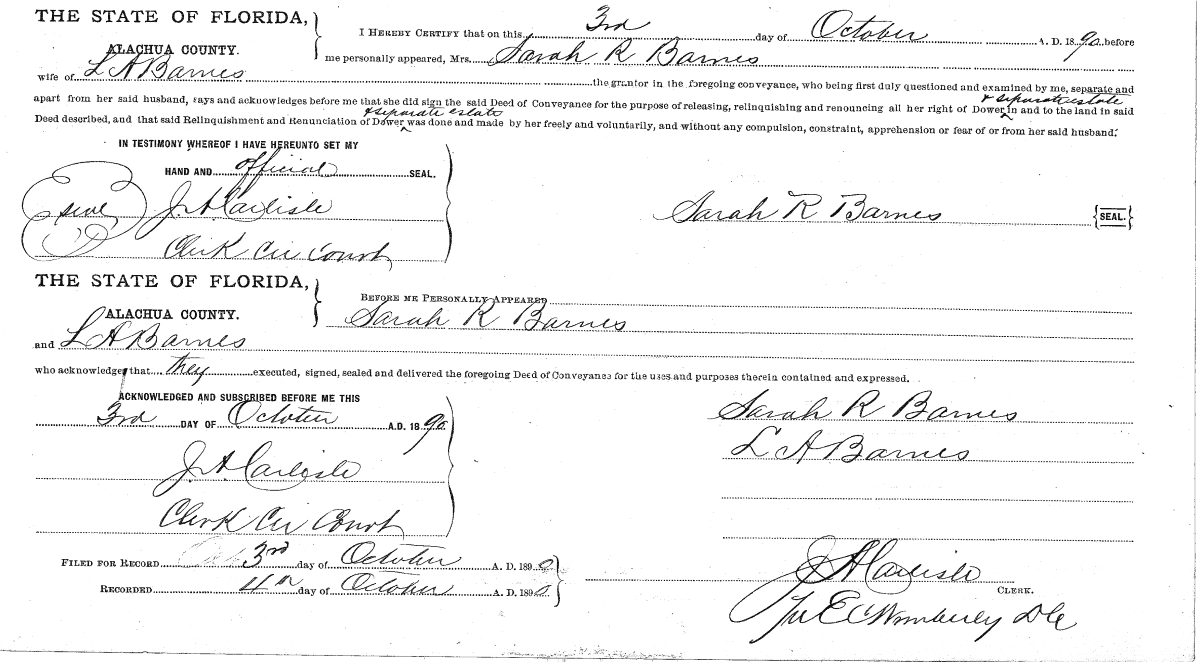 THE STATE OF FLORIDA,
ALACHUA COUNTY.
I HEREBY CERTIFY that on this 3rd day of October A. D. 1890 before
me personally appeared, Mrs. Sarah R Barnes
wife of L A Barnes the grantor in the foregoing conveyance, who being first duly questioned and examined by me, separate and
& separate estate
apart from her said husband, says and acknowledges before me that she did sign the said Deed of Conveyance for the purpose of releasing, relinquishing and renouncing all her right of Dower in and to the land in said
& separate estate
Deed described, and that said Relinquishment and Renunciation of Dower was done and made by her freely and voluntarily, and without any compulsion, constraint, apprehension or fear of or from her said husband.
IN TESTIMONY WHEREOF I HAVE HEREUNTO SET MY
HAND AND official SEAL.
seal J A Carlisle
Sarah R Barnes {SEAL.}
Clerk Cir Court
THE STATE OF FLORIDA,
ALACHUA COUNTY.
BEFORE ME PERSONALLY APPEARED
Sarah R Barnes
and L A Barnes
who acknowledge that they executed, signed, sealed and delivered the foregoing Deed of Conveyance for the uses and purposes therein contained and expressed.
ACKNOWLEDGED AND SUBSCRIBED BEFORE ME THIS
3rd DAY OF October A.D. 1890
Sarah R Barnes
L A Barnes
J A Carlisle
Clerk Cir Court
FILED FOR RECORD 3rd day of October A. D. 1890
RECORDED 4th day of October A. D. 1890
J A Carlisle
CLERK.
E C Wimberley DC